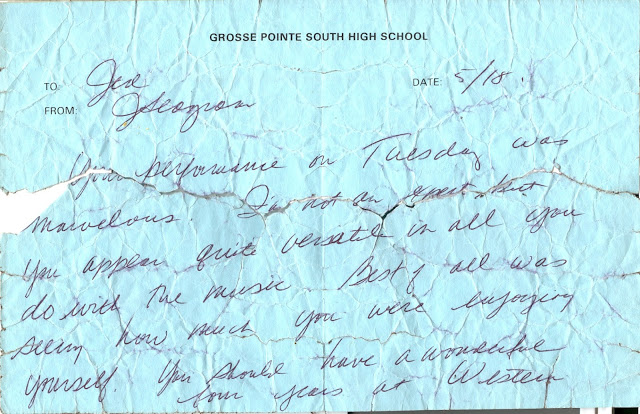 GROSSE POINTE SOUTH HIGH SCHOOL
TO: Jed DATE: 5/18.
FROM:
Your performance on Tuesday was
marvelous. I'm not an expert but
you appear quite versatile in all you
do with the music. Best of all was
seeing how much you were enjoying
yourself. You should have a wonderful
four years at Western